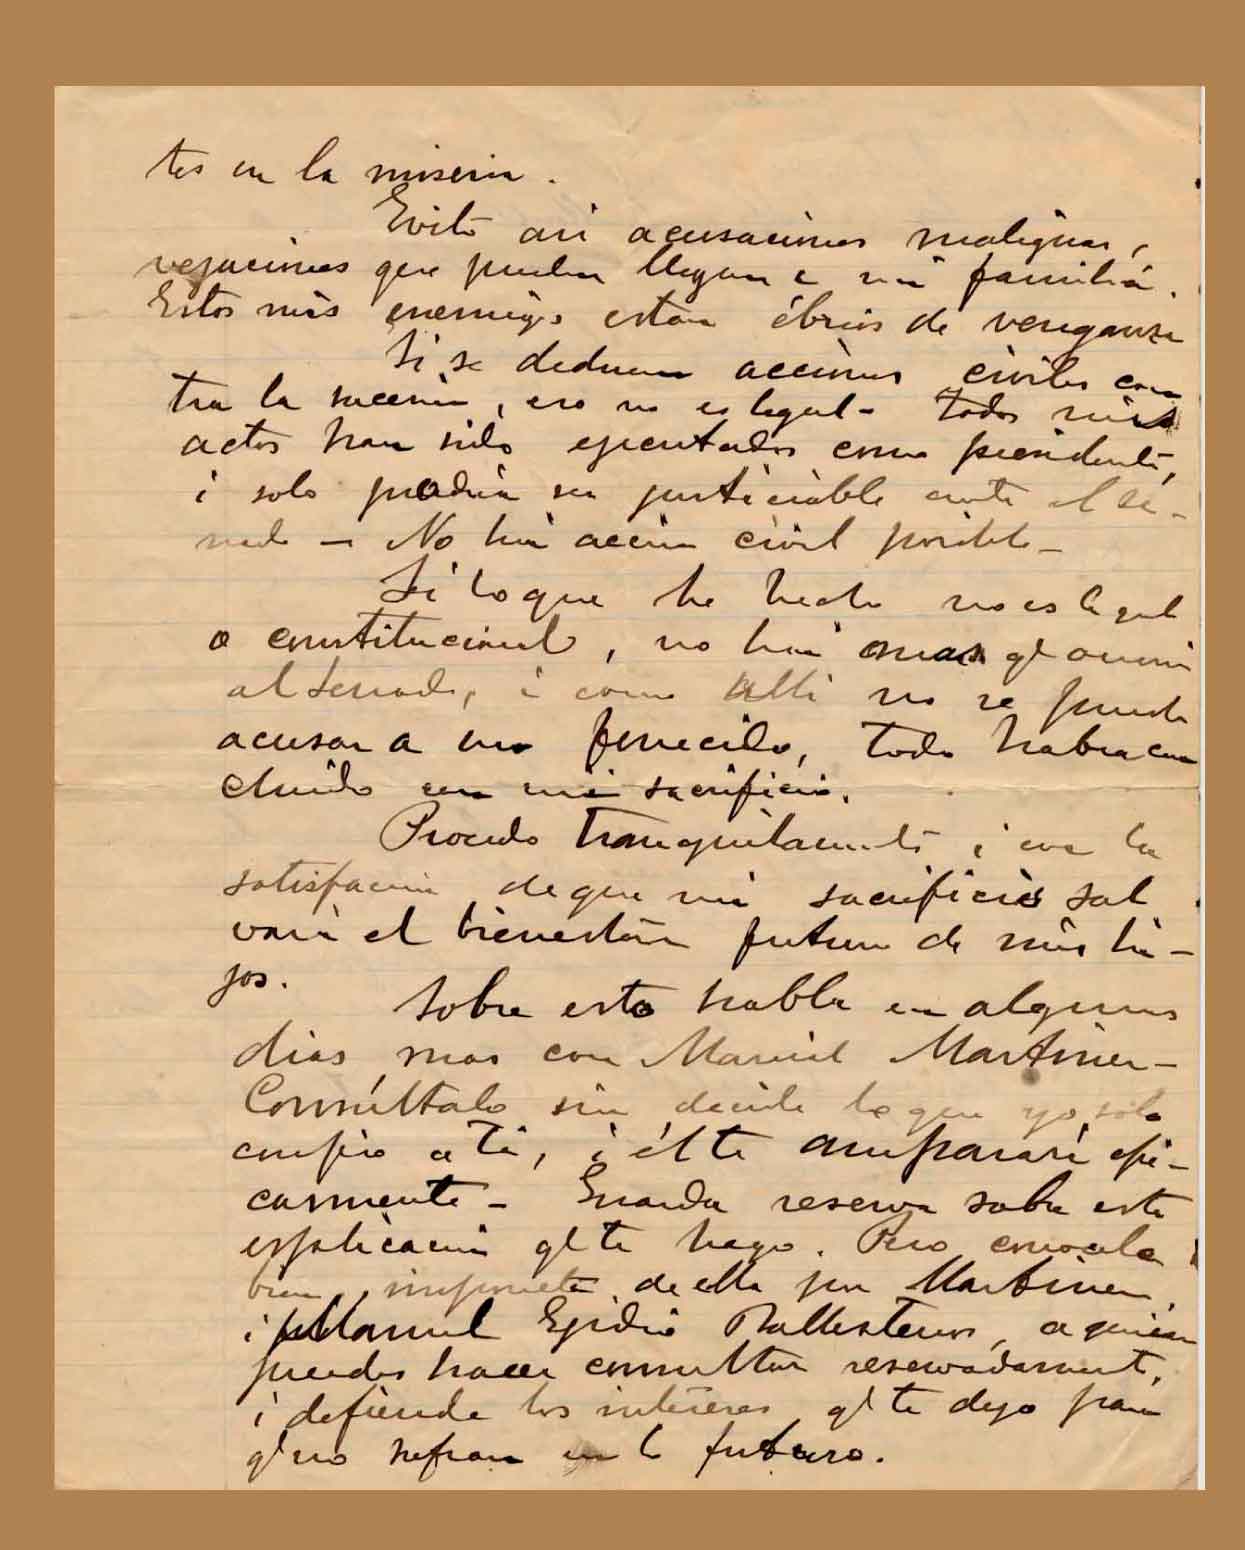 tes en la miseria.
Evito asi acusaciones malignas,
vejaciones que puedan llegar a mi familia.
Estos mis enemigos estan ébrios de venganza
Si se deducen acciones civiles con
tra la sucesion, eso no es legal- Todos mis
actos han sido ejecutados como presidente,
i solo podria ser justiciable ante el Se-
nado — No hai accion civil posible-
Si lo que he hecho no es legal
o constitucional, no hai mas qe ocurrir
al Senado, i como alli no se puede
acusar a un fenecido, todo habra con
cluido con mi sacrificio.
Procedo tranquilamente i con la
satisfaccion de que mi sacrificio sal
vará el bienestar futuro de mis hi-
jos.
Sobre esto habla en algunos
dias mas con Manuel Martinez-
Consúltalo sin decirle lo que yo solo
confio a ti, i él te amparará efi-
cazmente- Guarda reserva sobre esta
esplicacion qe te hago. Pero conocela
bien, imponete de ella por Martinez,
i Manuel Ejidio Ballesteros, a quien
puedes hacer consultar reservadamente,
i defiende los intereses qe te dejo para
qe no sufran en lo futuro.